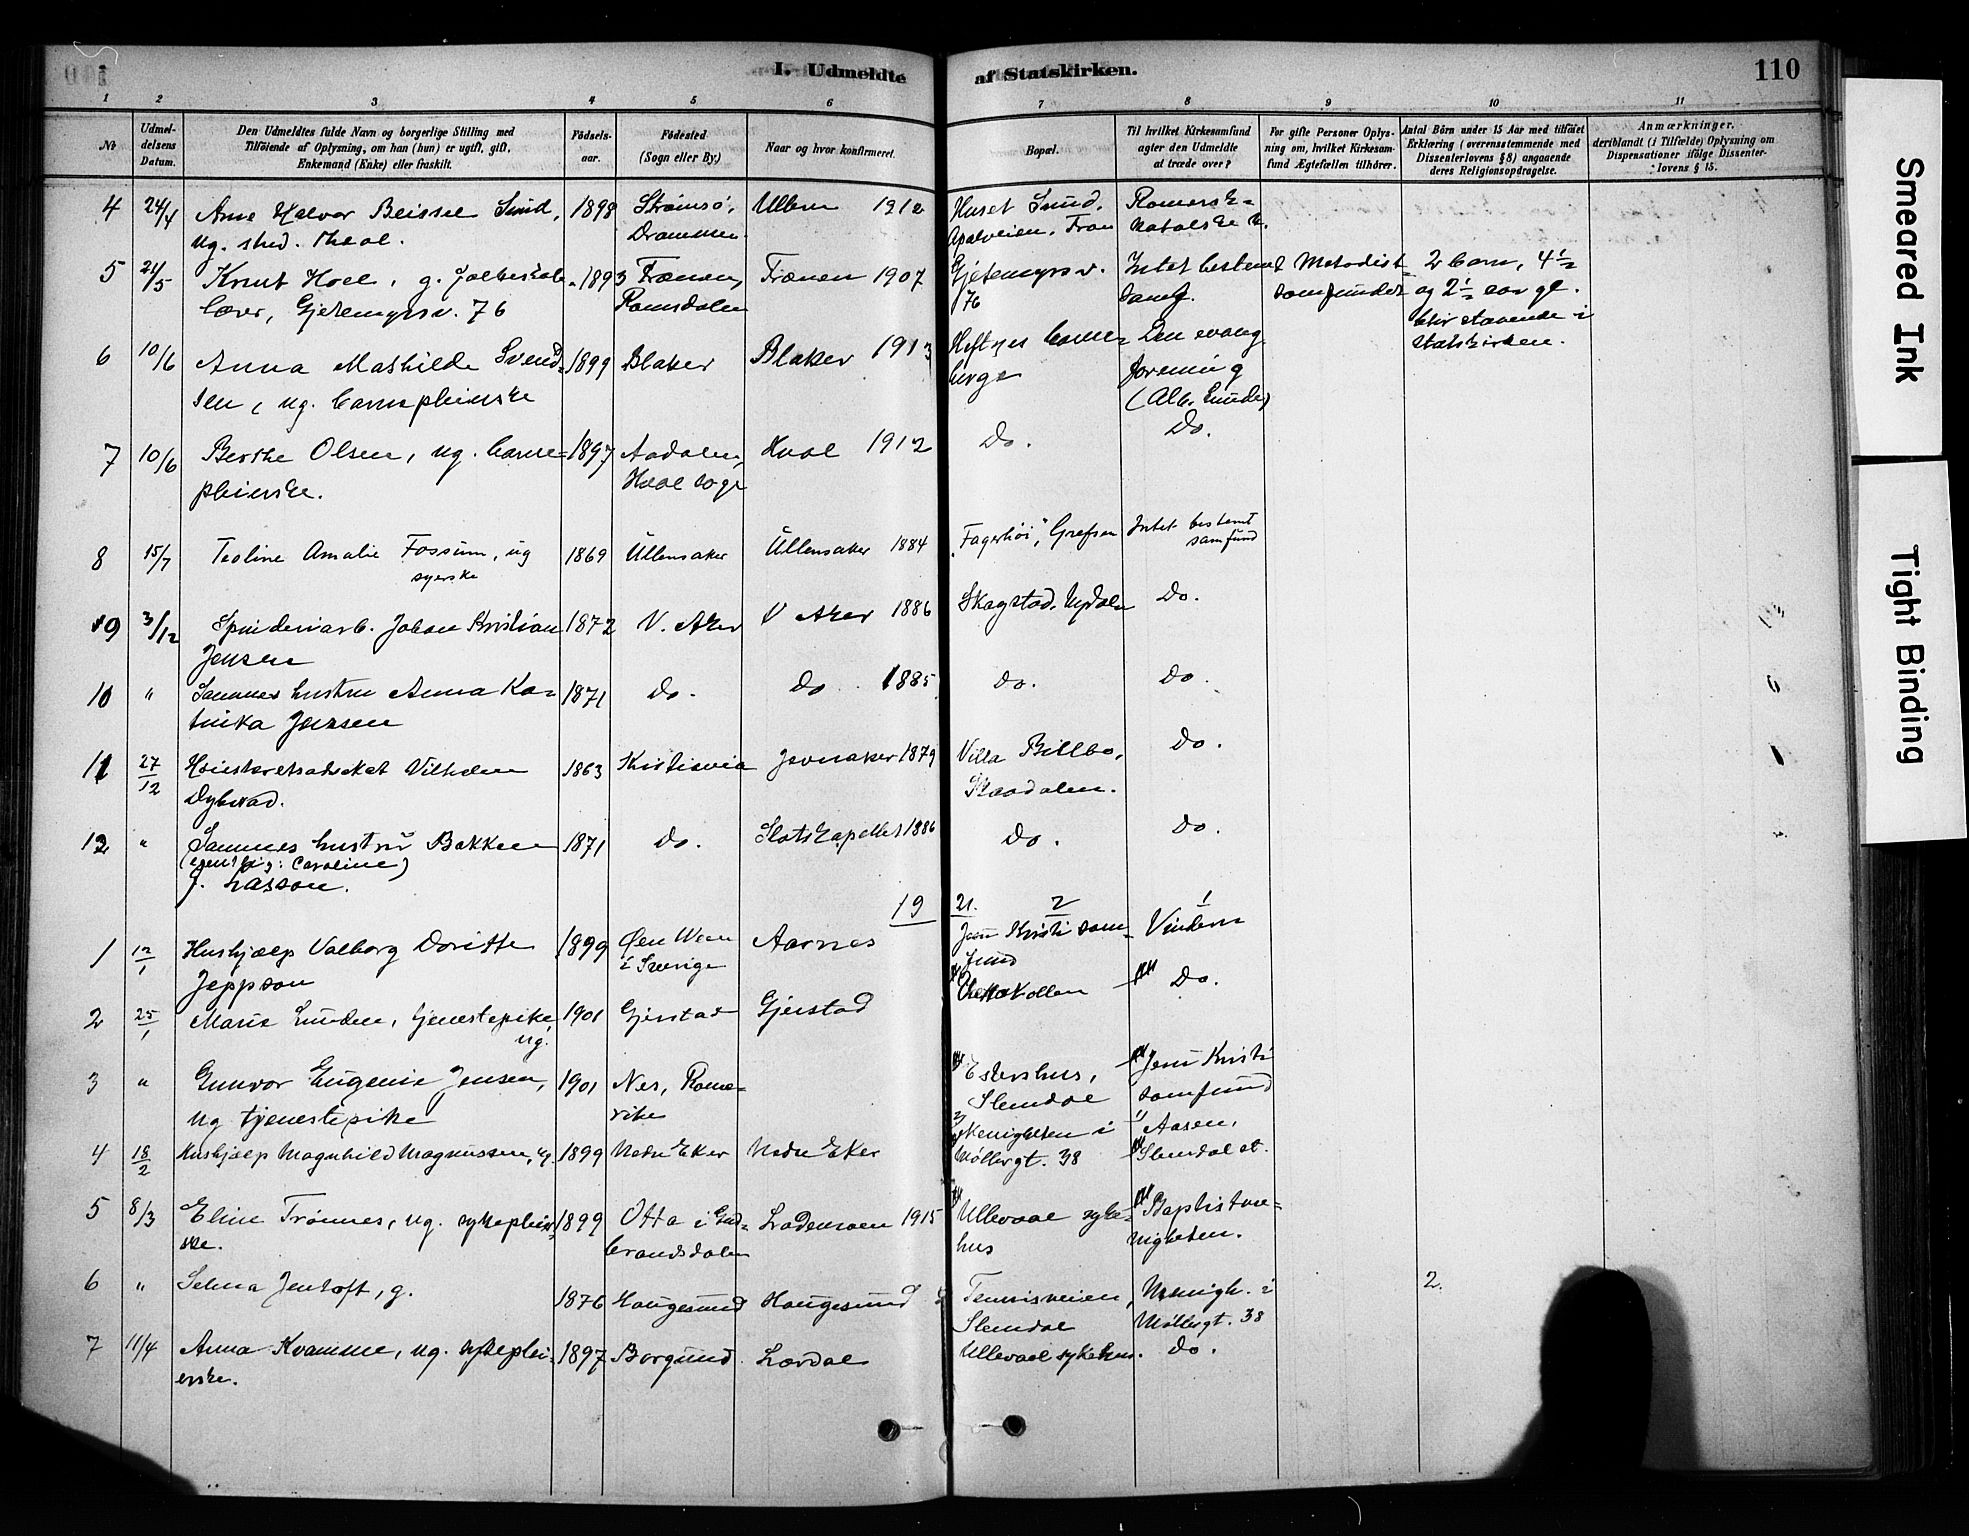 I. Udmeldte af Statskirken. 110
1 2 3 4 5 6 7 8 9 10 11
№
Udmeldelsens Datum.
Den Udmeldtes fulde Navn og borgerlige Stilling med
Tilføiende af Oplysning, om han (hun) er ugift, gift,
Enkemand (Enke) eller fraskilt.
Fødselsaar.
Fødested
(Sogn eller By)
Naar og hvor konfirmeret.
Bopæl.
Til hvilket Kirkesamfund
agter den Udmeldte
at træde over?
For gifte Personer Oplys-
ning om, hvilket Kirkesam-
fund Ægtefællen tilhører.
Antal Børn under 15 Aar med tilføiet
Erklæring (overensstemmende med
Dissenterlovens § 8) angaaende
deres Religionsopdragelse.
Anmærkninger.
deriblandt (i Tilfælde) Oplysning om
Dispensationer ifølge Dissenter-
lovens § 15.
4 24/4 Arne Halvor Beissel Sund, 1898 Strømsø, Ullern 1912 Huset Sund, Romersk-
ug. stud. theol. Drammen
5 21/5 Knut Hoel, g. 1893 Frænen, Frænen 1907 Gjetemyrsv. Intet bestemt Metodist- 2 barn, 4 1/2
lærer, Gjetemyrsv. 76 Romsdalen 76 samf. samfundet og 2 1/2 aar gl.
blir staaende i
statskirken.
6 10/6 Anna Mathilde Svend- 1899 Blaker Blaker 1913 Heftyes barne- Den evang.
sen, ug. barnepleierske forening
7 10/6 Berthe Olsen, ug. barne- 1897 Aadalen, Hval 1912 Do. Do.
pleierske. Hval sogn
8 15/7 Teoline Amalie Fossum, ug 1869 Ullensaker Ullensaker 1884 "Fagerhøi", Grefsen Intet bestemt
syerske samfund
9 3/12 Spinderiarb. Johan Kristian 1872 V. Aker V Aker 1886 Skagstad, Nydalen Do.
Jensen
10 " Sammes hustru Anna Ka- 1871 do. do. 1885 do. do.
trika Jensen
11 27/12 Høiesteretsadvokat Vilhelm 1863 Kristiania Jevnaker 1879 Villa Billbo, do.
Dybwad. Skaadalen.
12 " Sammes hustru Bokken 1871 do. Slotskapellet 1886 do. do.
(egentlig: Caroline)
f. Lasson.
19 21.
2 1
1 12/1 Hushjælp Valborg Doritte 1899 Øen Aarnes Jesu Kristi sam- Vindern
Jeppson i Sverige fund
2 25/1 Marie Lunden, tjenestepike, 1901 Gjerstad Gjerstad Do.
ug.
3 " Gunvor Eugenie Jensen, 1901 Nes, Rome- Estershus, Jesu Kristi
ug tjenestepike rike Slemdal samfund
4 18/2 Hushjælp Magnhild Magnussen, ug. 1899 Nedre Eker Nedre Eker Menigheten i Aasen,
Møllergt. 38 Slemdal st.
5 8/3 Eline Trønnes, ug. sykepleier- 1899 Otta i Gud- Lademoen 1915 Ullevaal syke- Baptistme-
ske. brandsdalen hus nigheten.
6 " Selma Jentoft, g. 1876 Haugesund Haugesund Tennisveien, Menigh. i 2.
Slemdal Møllergt. 38
7 11/4 Anna Kvamme, ug. sykeplei- 1897 Borgund Lærdal Ullevaal sykehus. do.
erske.
Smeared Ink
Tight Binding